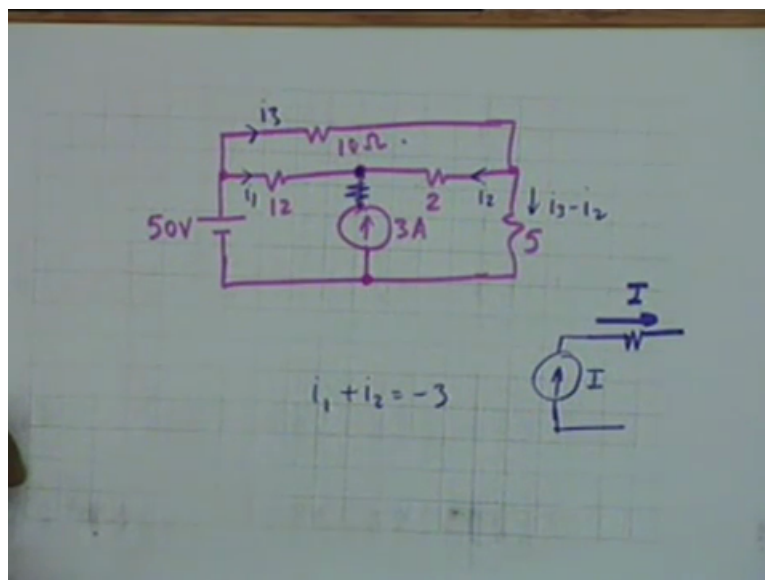 i3
10Ω
i1 12 2 i2 ↓ i3-i2
50V 3A 5
I
I
i1 + i2 = -3